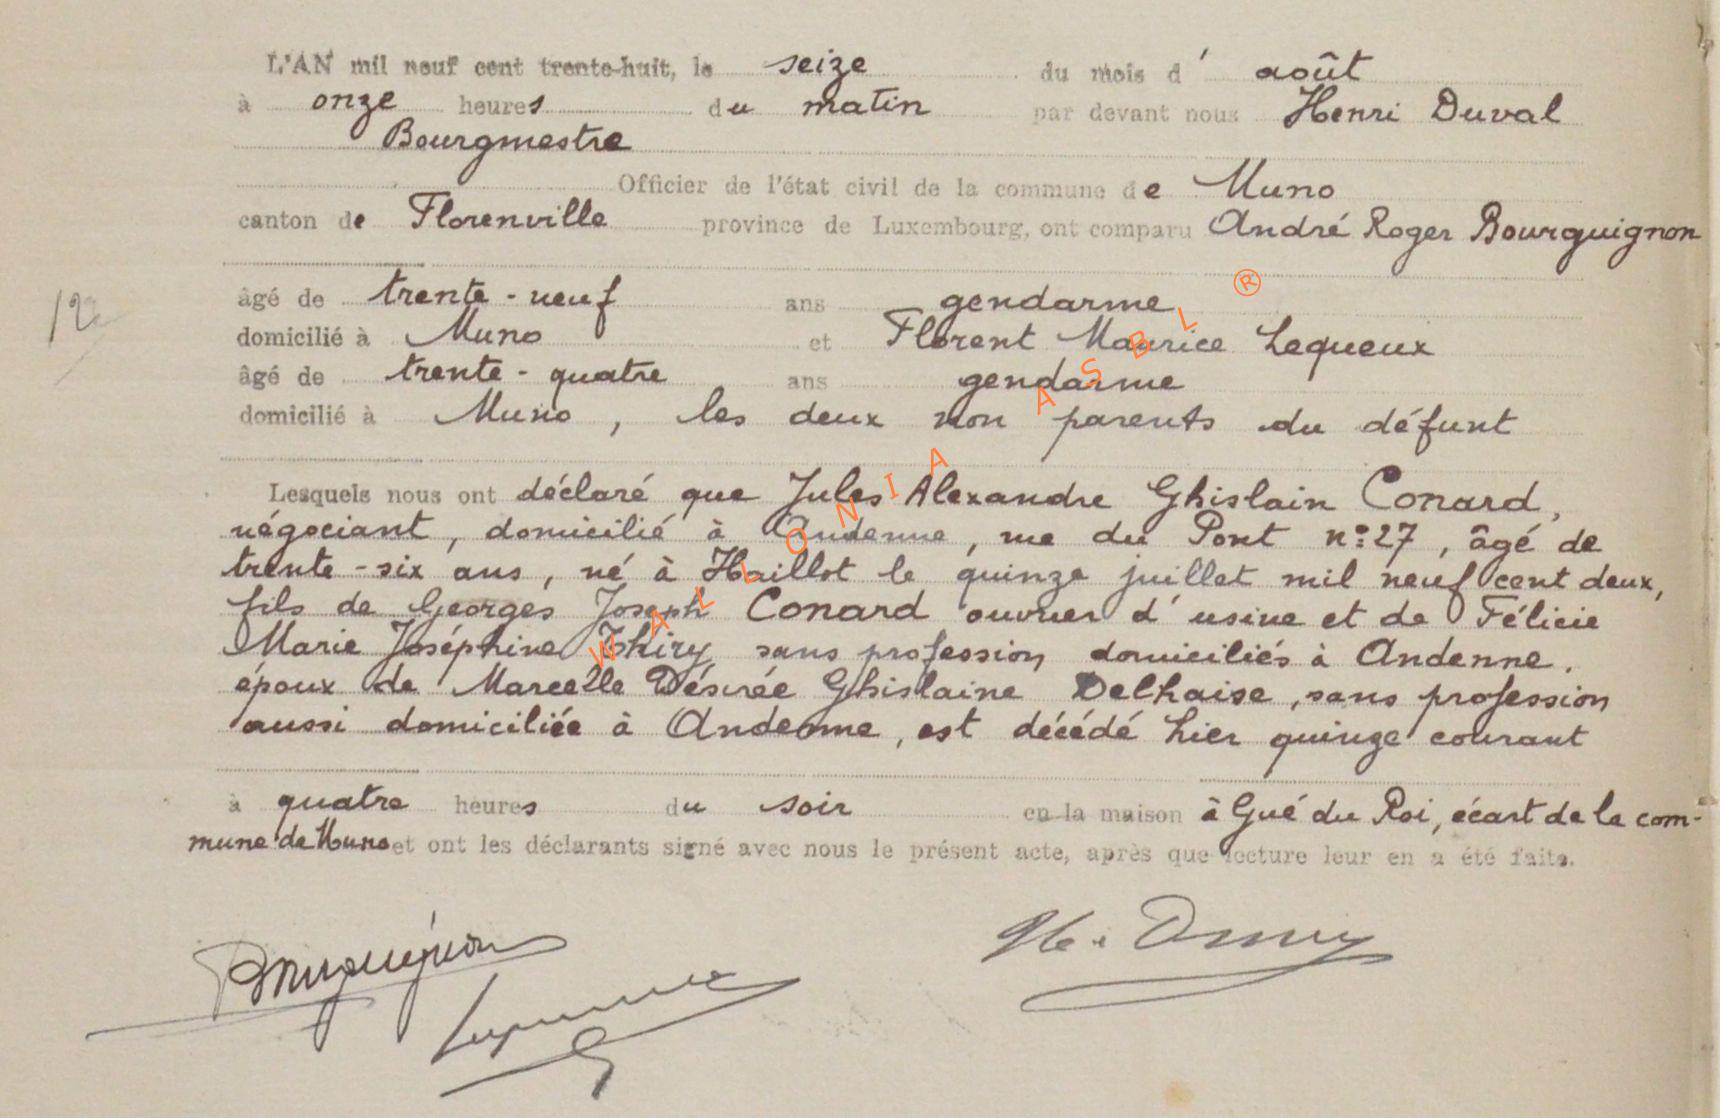 L'AN mil neuf cent trente-huit, le seize du mois d' août
à onze heures du matin par devant nous Henri Duval
Bourgmestre
Officier de l'état civil de la commune de Muno
canton de Florenville province de Luxembourg, ont comparu André Roger Bourguignon
âgé de trente-neuf ans gendarme
12
domicilié à Muno et Florent Maurice Lequeux
âgé de trente-quatre ans gendarme
domicilié à Muno, les deux non parents du défunt
Lesquels nous ont déclaré que Jules Alexandre Ghislain Conard,
négociant, domicilié à Andenne, rue du Pont n°:27, âgé de
trente-six ans, né à Haillot le quinze juillet mil neuf cent deux,
fils de Georges Joseph Conard ouvrier d'usine et de Félicie
Marie Joséphine Thiry, sans profession domiciliés à Andenne.
époux de Marcelle Désirée Ghislaine Delhaise, sans profession
aussi domiciliée à Andenne, est décédé hier quinze courant
à quatre heures du soir en la maison à Gué du Roi, écart de la com-
mune de Muno et ont les déclarants signé avec nous le présent acte, après que lecture leur en a été faite.
Bourguignon
Lequeux
WALLONIA ASBL ®